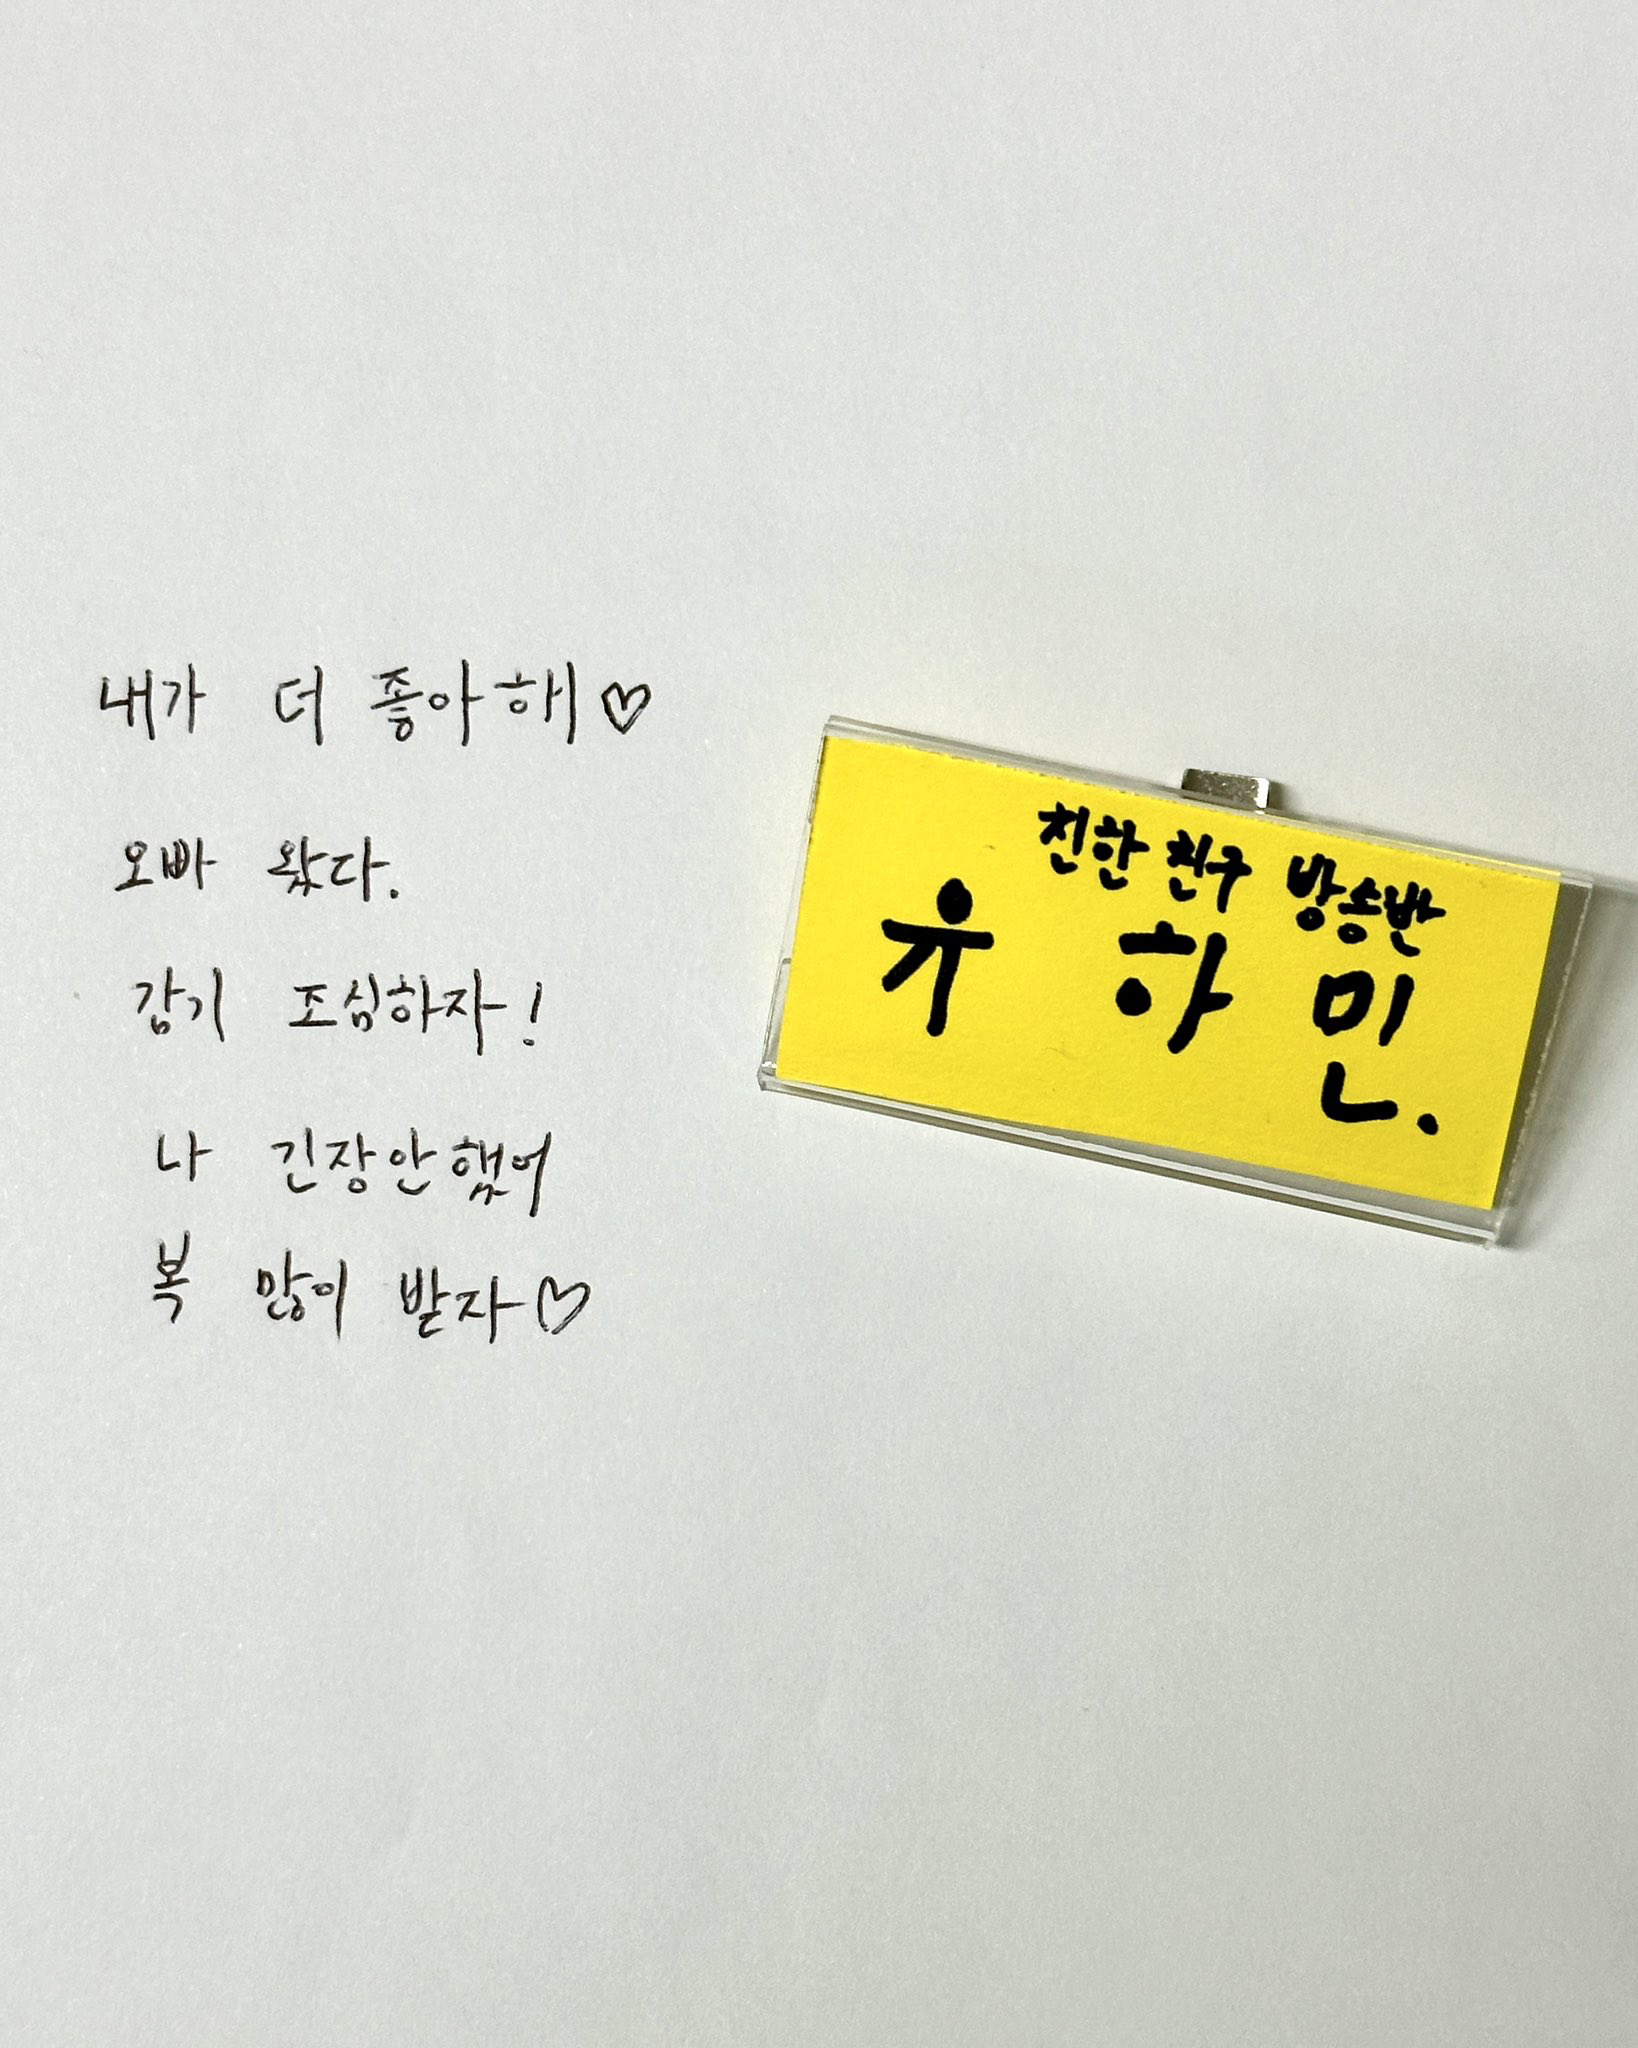 내가 더 좋아해♡
오빠 왔다.
감기 조심하자!
나 긴장안했어
복 많이 받자♡
친한친구 방송반
유하민.